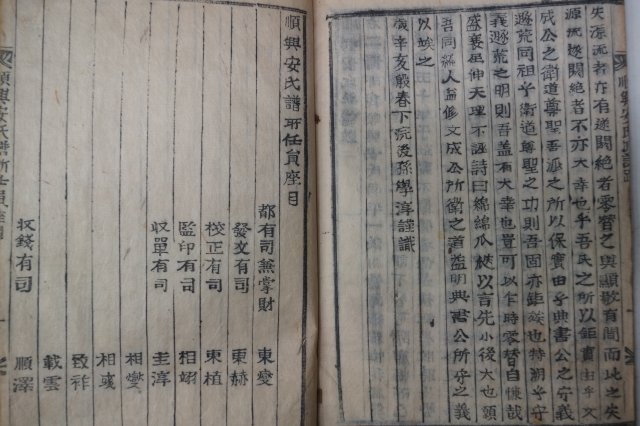 失源流者亦有遂閼絶者零替之與顯敭有間而地之失
源流遂閼絶者不亦大幸也乎吾氏之所以鉅賣由乎文
成公之衛道尊聖吾派之所以保實由乎典書公之守義
遯荒同祖乎衛道尊聖之功則吾固亦鉅族也特朔乎守
義遯荒之明則吾盖有大幸也豈可以乍時零替自懐哉
盛衰屈伸天理不誣詩曰綿綿瓜瓞以言先小後大也願
吾同緜人益修文成公所衛之道益明典書公所守之義
以竢之
歲辛亥殷春下浣后孫學淳謹識
順興安氏譜所任員座目
都有司兼掌財 東燮
發文有司 東赫
校正有司 東植
監印有司 相翊
収單有司 圭淳
相燮
相奭
致祚
載雲
収錢有司 順澤